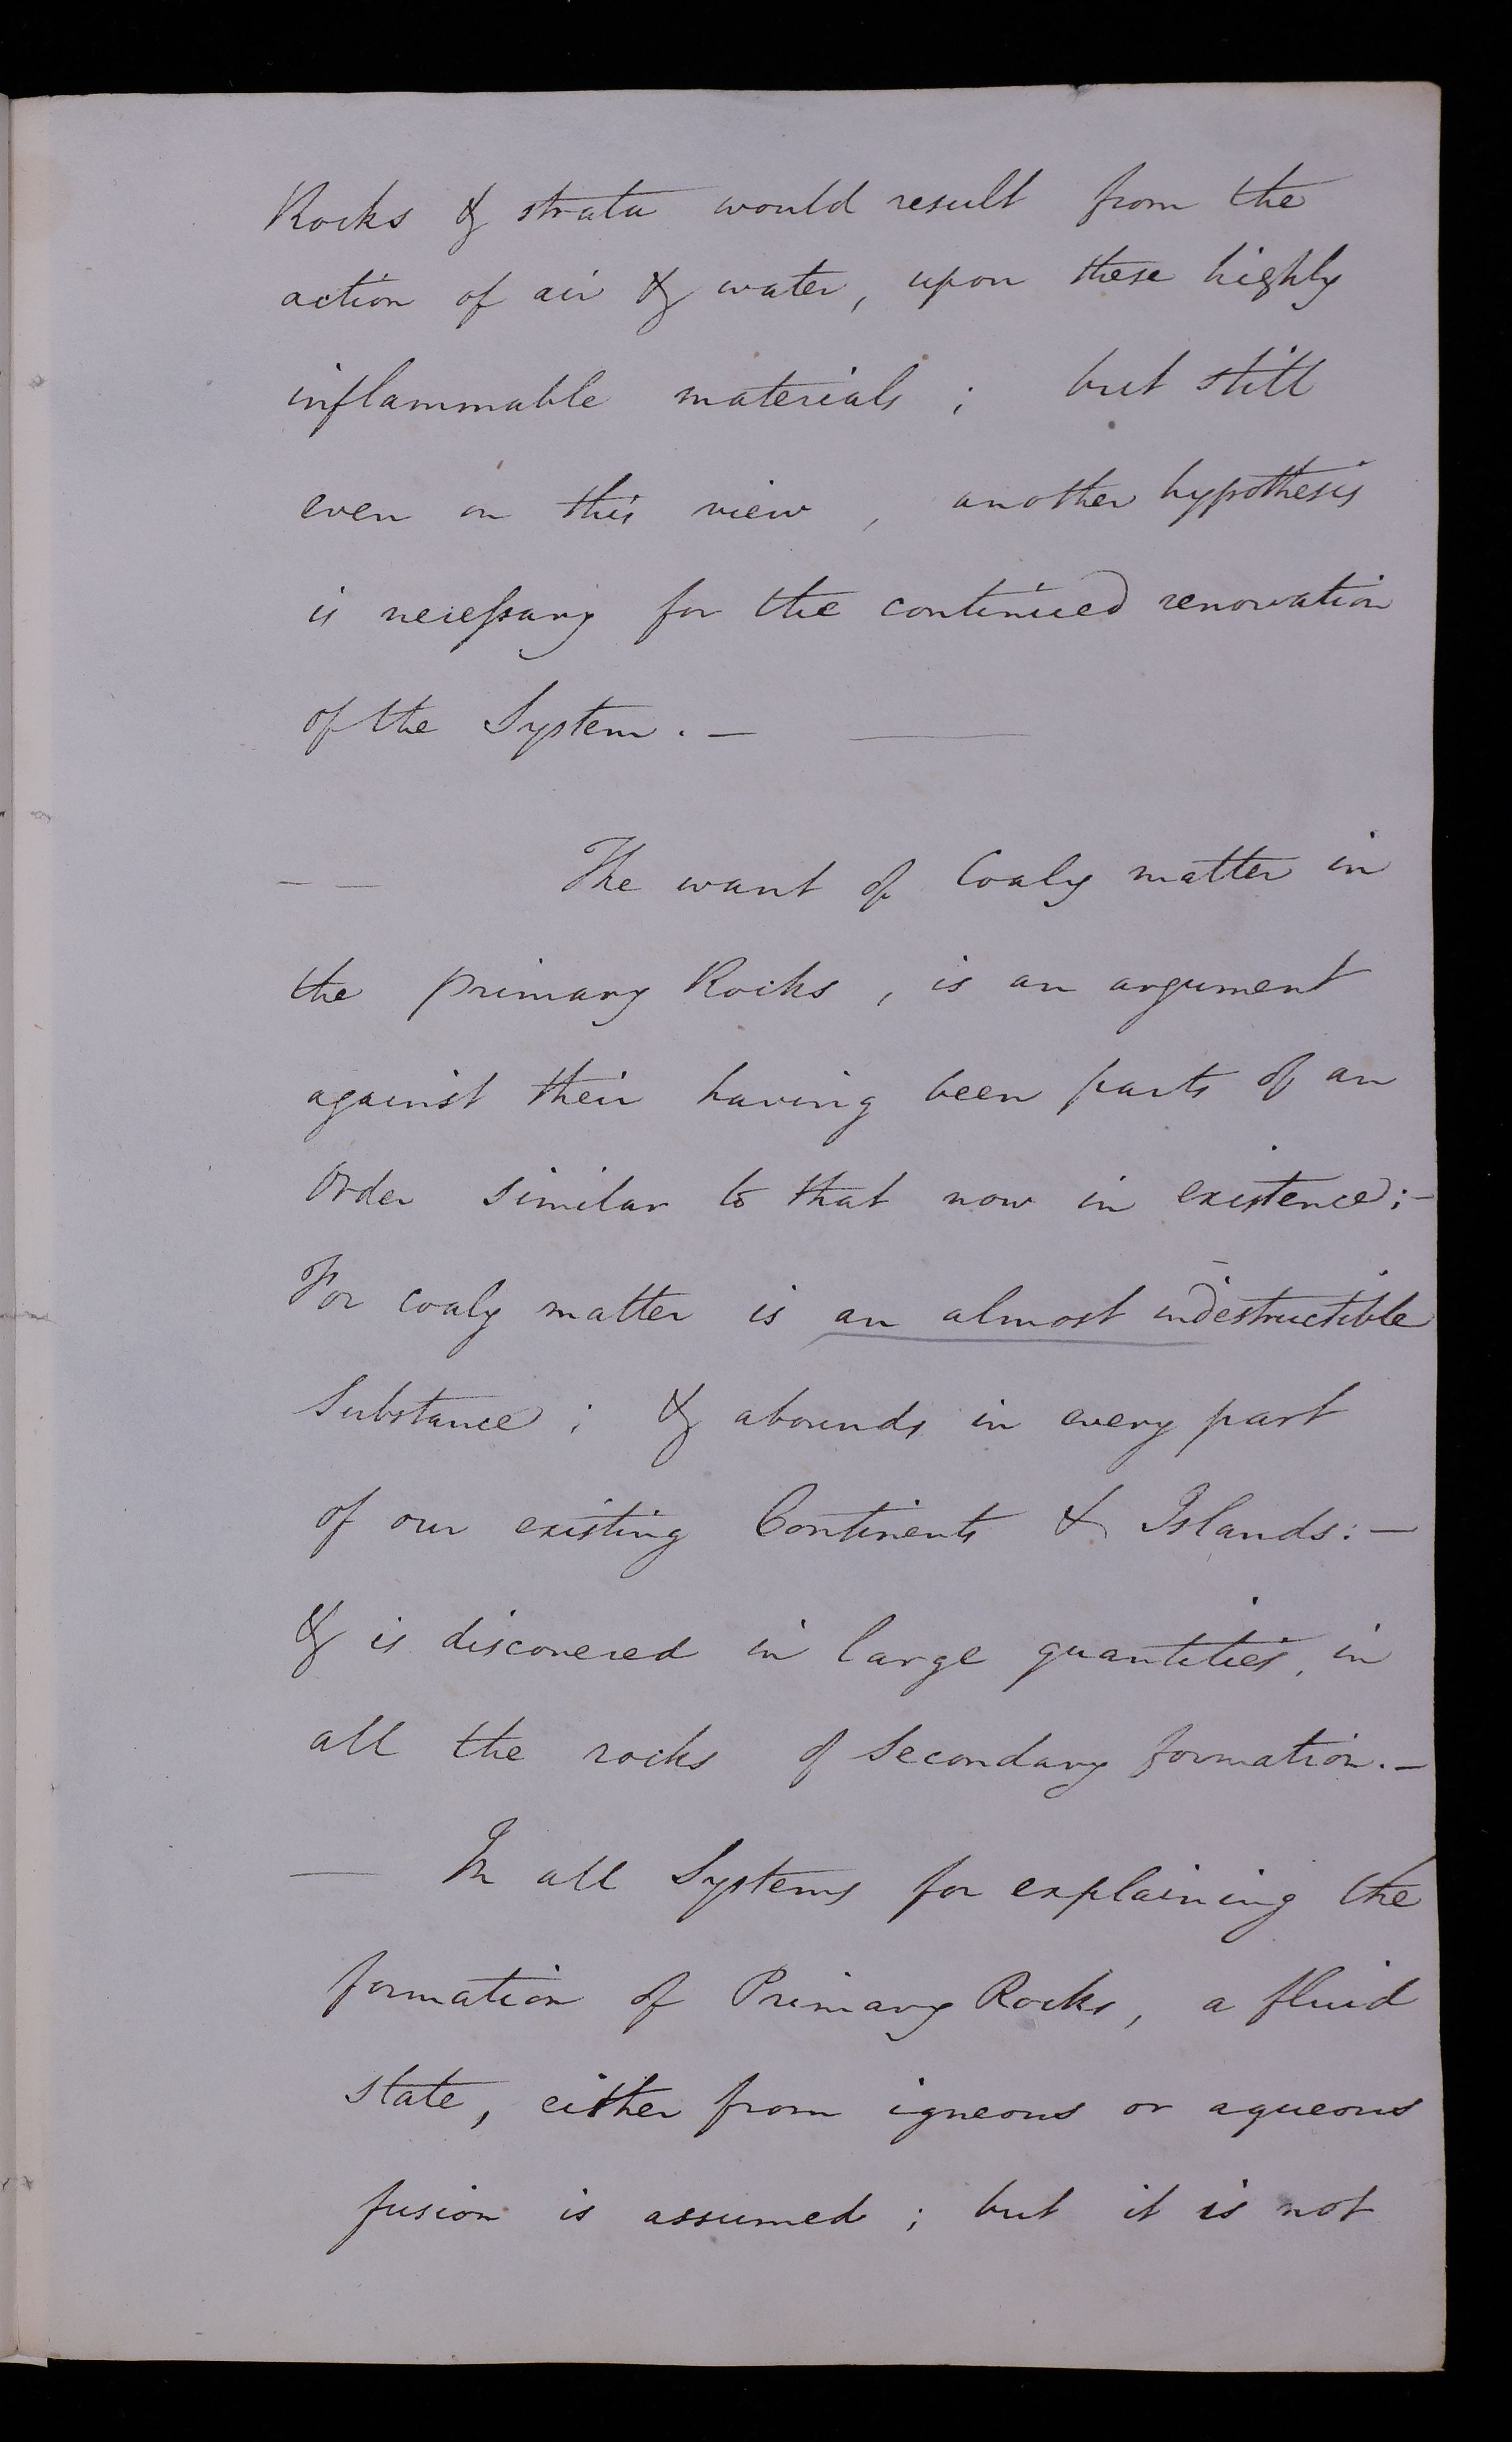 Rocks & strata would result from the
action of air & water, upon these highly
inflammable materials ; but still
even on this view , another hypothesis
is neceſsary for the continued renovation
of the System. — —
— — The want of Coaly matter in
the primary Rocks , is an argument
against their having been parts of an
Order similar to that now in existence;-
For coaly matter is an almost indestructible
Substance ; & abounds in every part
of our existing Continents & Islands: —
& is discovered in large quantities, in
all the rocks of Secondary formation. —
— In all Systems for explaining the
formation of Primary Rocks, a fluid
state, either from igneous or aqueous
fusion is assumed ; but it is not